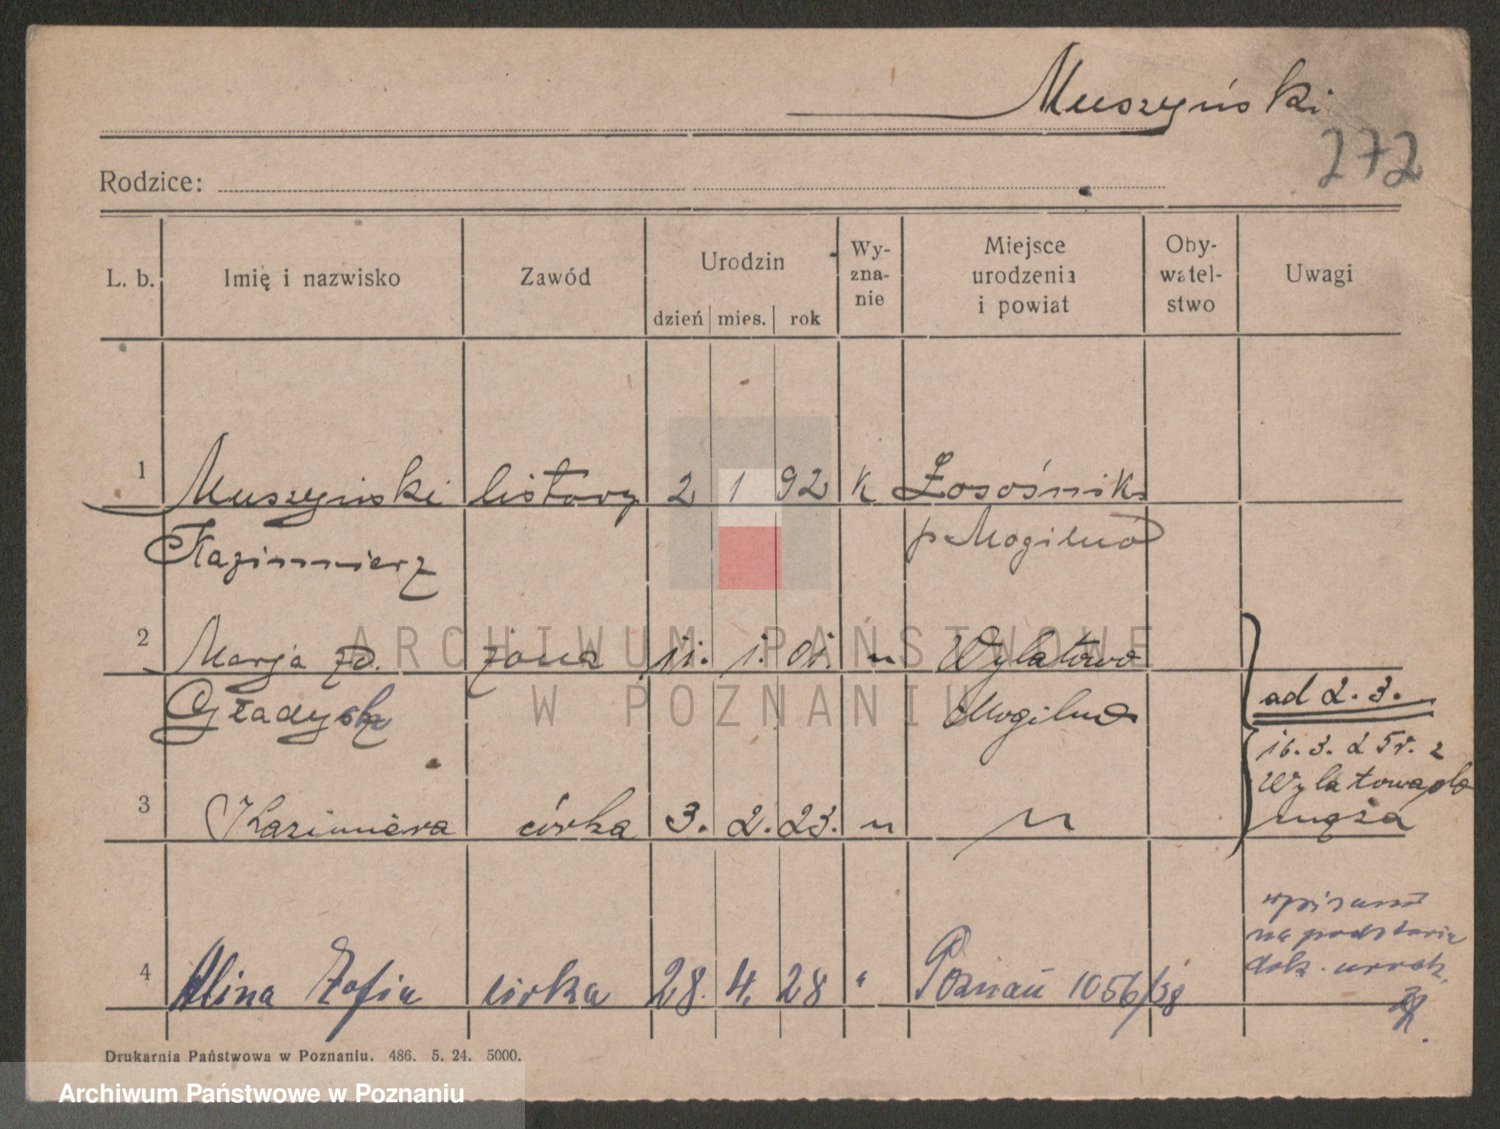 Muszyński
272
Rodzice:
L. b. Imię i nazwisko Zawód Urodzin dzień mies. rok Wy-zna-nie Miejsce urodzenia i powiat Oby-watel-stwo Uwagi
1 Muszyński listowy 2 1 92 k Łosośniki
Kazimmierz p. Mogilno
2 Marja zd. żona 11. 1. 01. " Wylatowo
Gładysz Mogilno
ad 2. 3.
16. 3. 25 r. z
Wylatowa do
męża
3 Kazimiera córka 3. 2. 23. " "
wpisano
na podstawie
dok. urodz.
4 Alina Zofia córka 28. 4. 28 " Poznań 1056/38
Drukarnia Państwowa w Poznaniu. 486. 5. 24. 5000.
ARCHIWUM PAŃSTWOWE
W POZNANIU
Archiwum Państwowe w Poznaniu